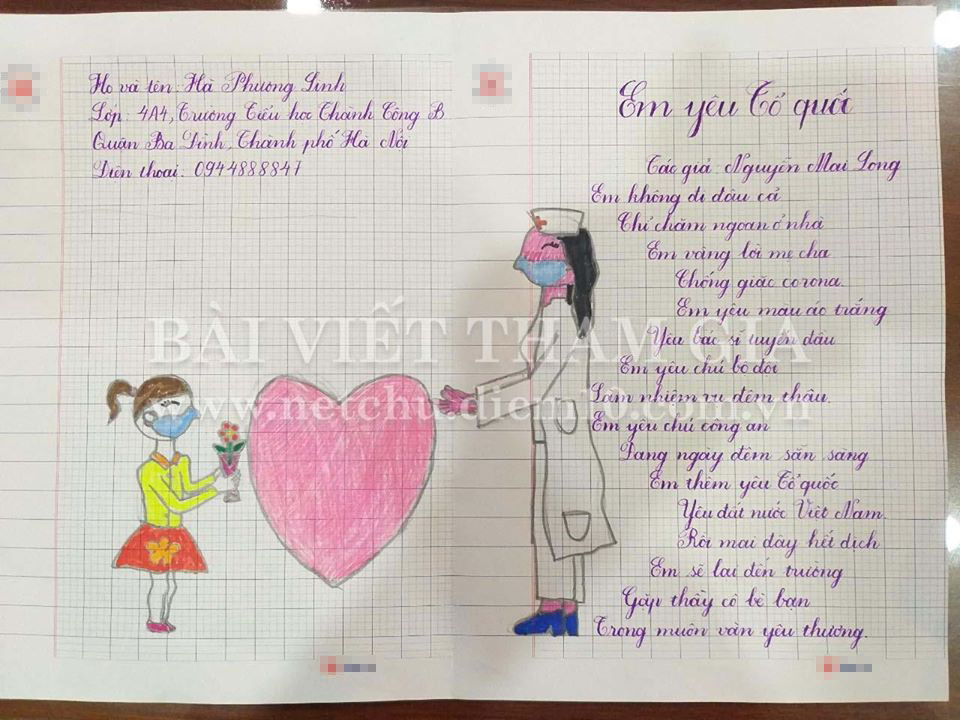 Họ và tên: Hà Phương Linh
Lớp: 4A4, Trường Tiểu học Thành Công B
Quận Ba Đình, Thành phố Hà Nội
Điện thoại: 0944888847
Em yêu Tổ quốc
Tác giả: Nguyễn Mai Long
Em không đi đâu cả
Chỉ chăm ngoan ở nhà
Em vâng lời mẹ cha
Chống giặc corona.
Em yêu màu áo trắng
Yêu bác sĩ tuyến đầu
Em yêu chú bộ đội
Làm nhiệm vụ đêm thâu.
Em yêu chú công an
Đang ngày đêm sẵn sàng
Em thêm yêu Tổ quốc
Yêu đất nước Việt Nam.
Rồi mai đây hết dịch
Em sẽ lại đến trường
Gặp thầy cô bè bạn
Trong muôn vàn yêu thương.
BÀI VIẾT THAM GIA
www.netchudiem10.com.vn